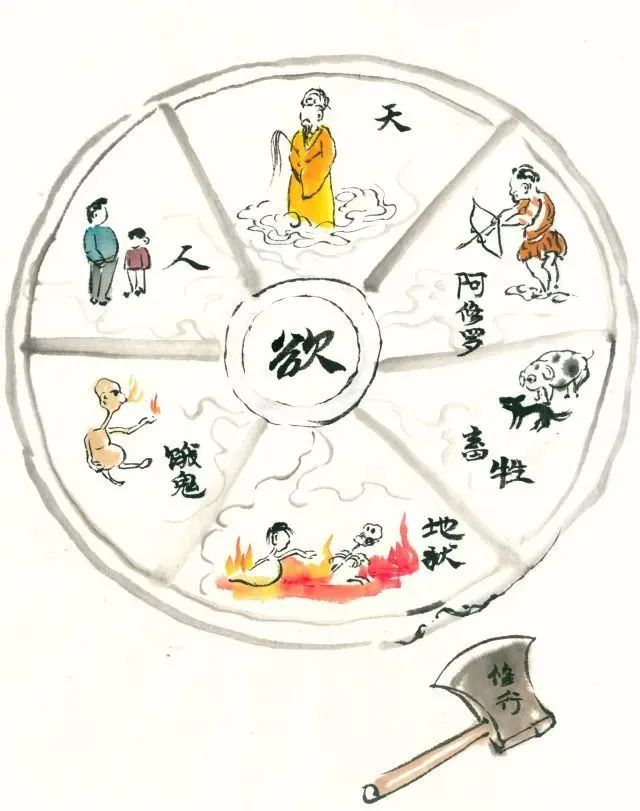 天
人
阿修罗
欲
畜牲
饿鬼
地狱
修行